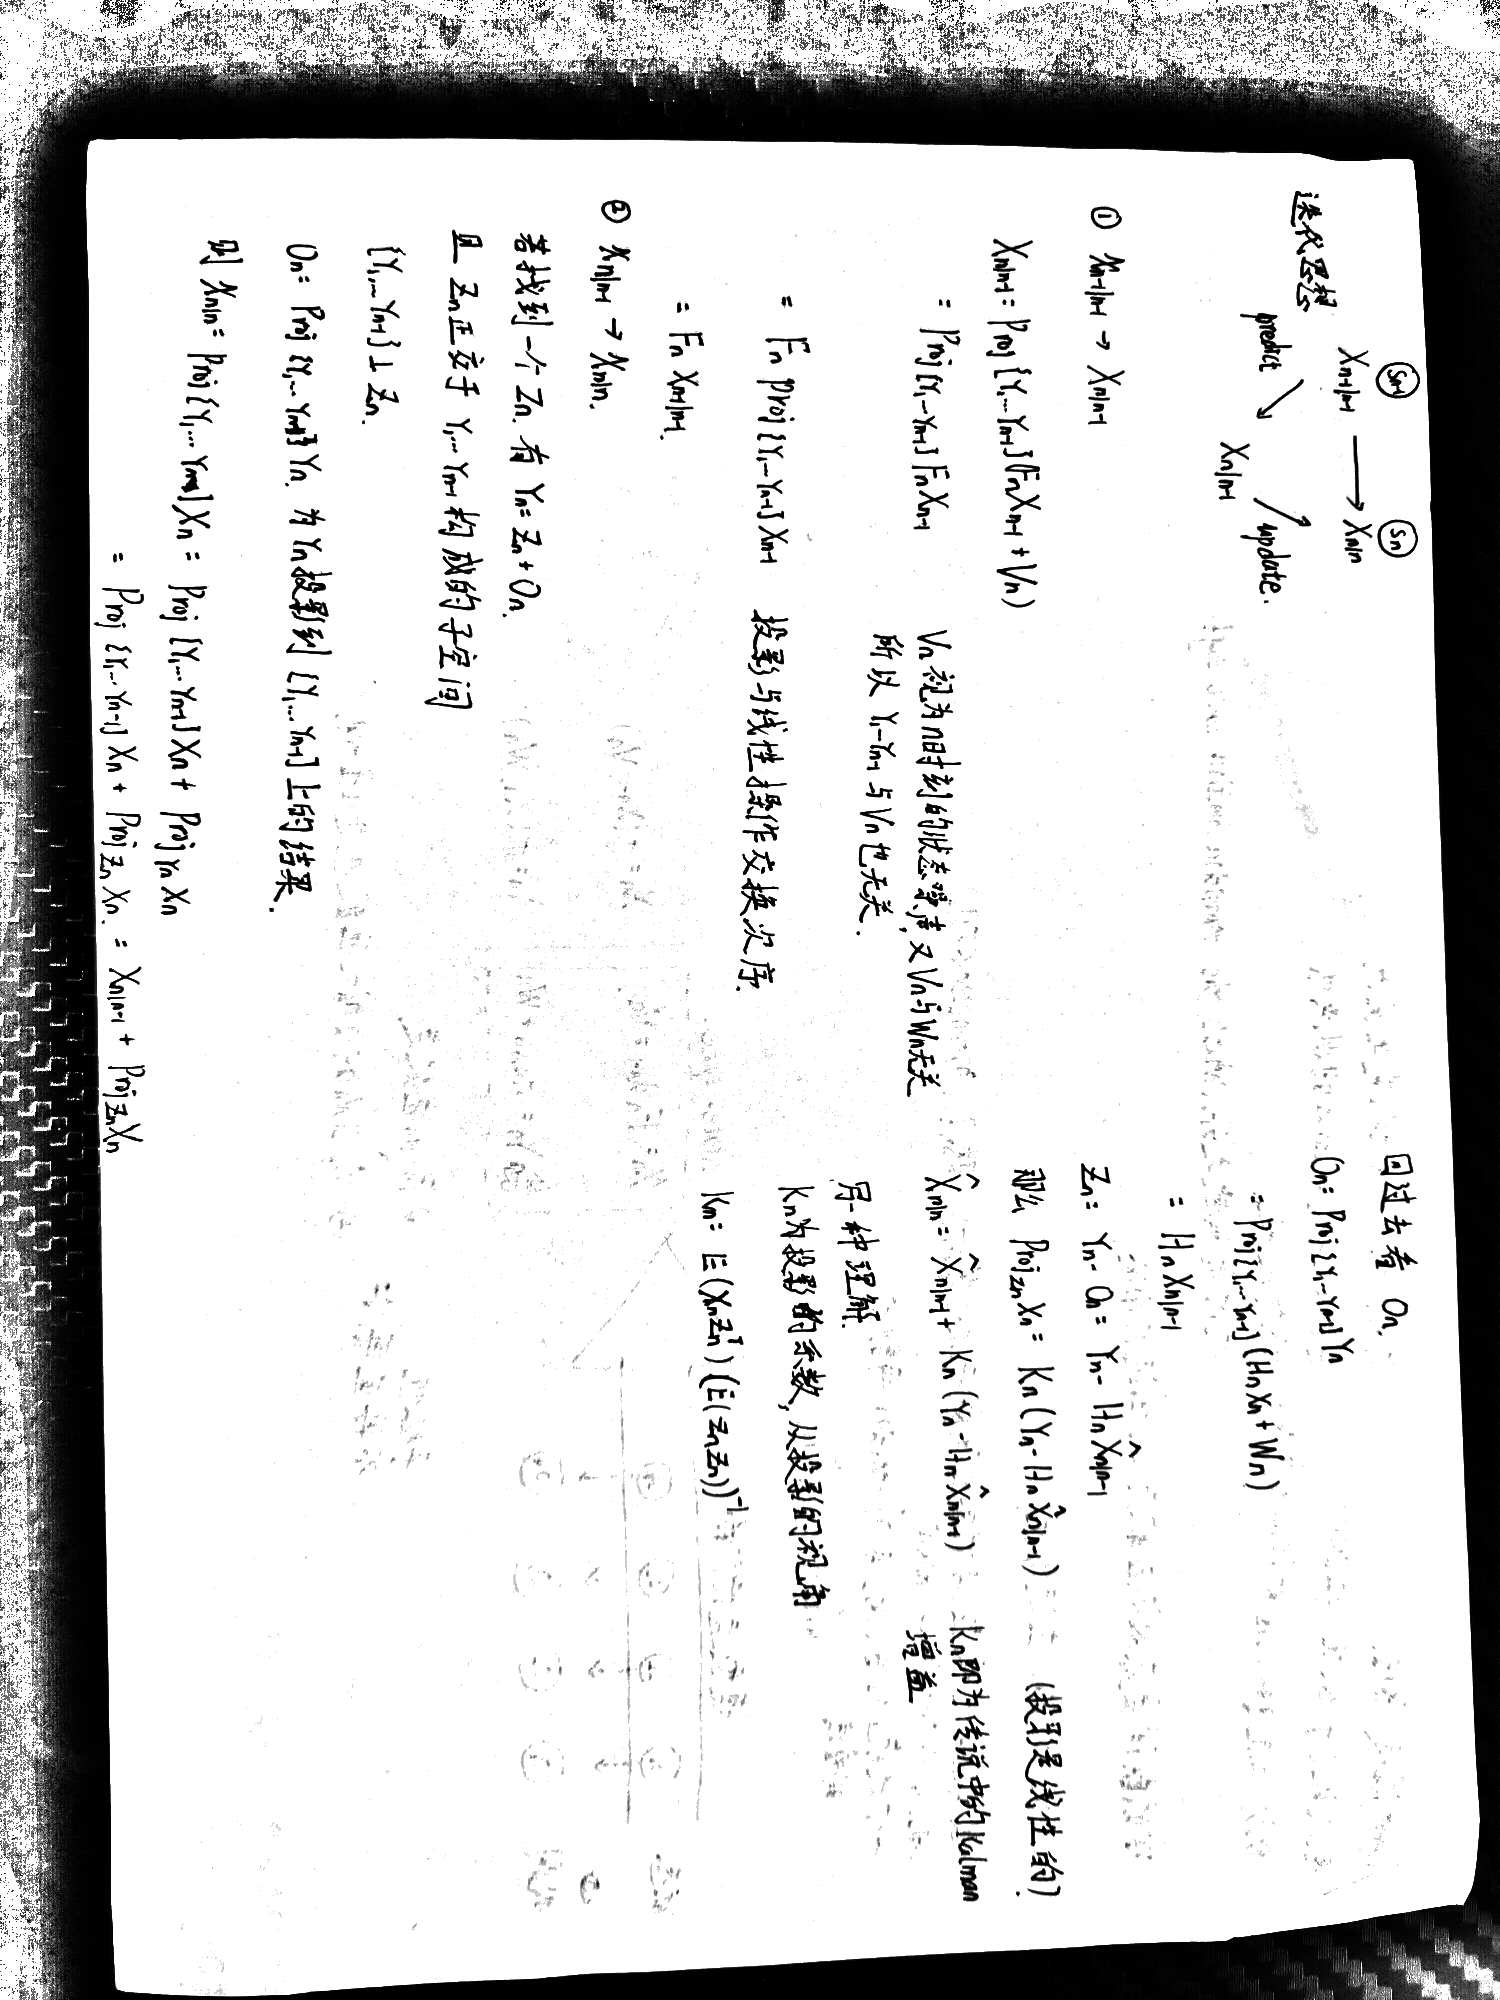 Sn-1 Sn
Xn-1|n-1 → Xn|n
迭代思想
predict ↘ ↗ update.
Xn|n-1
① Xn-1|n-1 → Xn|n-1
Xn|n-1 = Proj{Y1...Yn-1}(FnXn-1 + Vn)
= Proj{Y1-Yn-1} FnXn-1
Vn 视为n时刻的状态噪声,又Vn与Wn无关
所以 Y1-Yn-1 与Vn也无关.
= Fn proj{Y1-Yn-1} Xn-1 投影与线性操作交换次序.
= Fn Xn-1|n-1.
② Xn|n-1 → Xn|n.
若找到一个 Zn. 有 Yn = Zn + On.
且 Zn正交于 Y1...Yn-1 构成的子空间
{Y1,...Yn-1} ⊥ Zn.
On = Proj{Y1...Yn-1} Yn. 为Yn投影到 {Y1...Yn-1} 上的结果.
则 Xn|n = Proj{Y1...Yn} Xn = Proj{Y1...Yn-1} Xn + ProjYn Xn
= Proj{Y1...Yn-1} Xn + ProjZn Xn. = Xn|n-1 + ProjZn Xn
回过去看 On.
On = Proj{Y1-Yn-1} Yn
= Proj{Y1...Yn-1} (HnXn + Wn)
= Hn Xn|n-1
Zn = Yn - On = Yn - Hn X̂n|n-1
那么 ProjZn Xn = Kn (Yn - Hn X̂n|n-1) (投影是线性的).
X̂n|n = X̂n|n-1 + Kn (Yn - Hn X̂n|n-1) Kn即为传说中的Kalman
增益
另一种理解.
Kn为投影的系数,从投影的视角
Kn = E(XnZnᵀ)(E(ZnZn))⁻¹